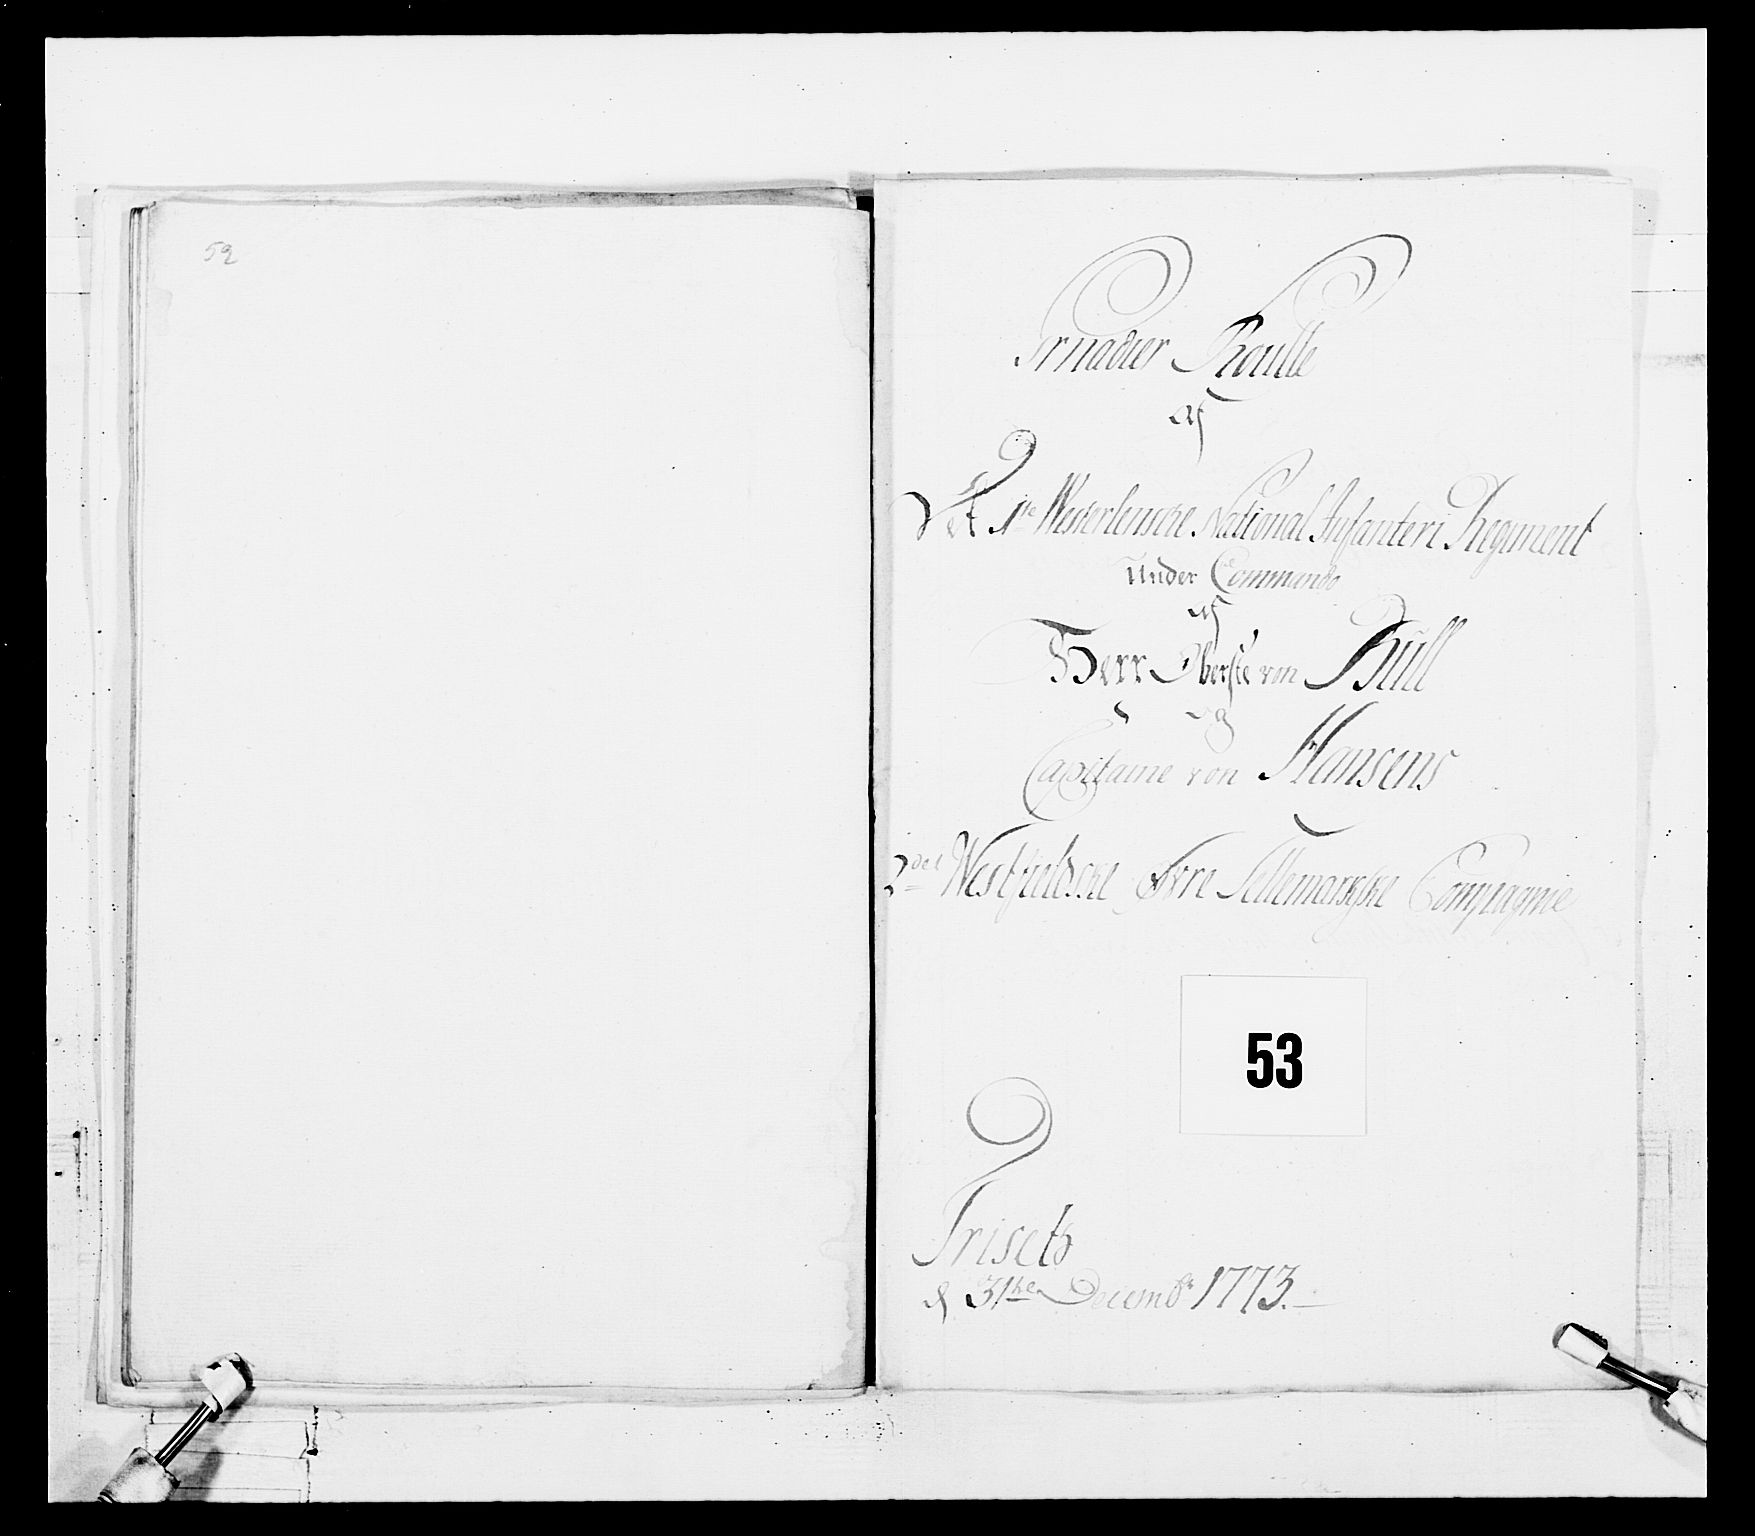 52
Grnadier Roulle
af
Det 1te Westerlensche National Infanteri Regiment
Under Commando
af
Herr Oberste von Hüll
og
Capitaine von Hansens
2det Westfieldske Øvre Tellemarkske Compagnie
53
Friseth
d 31te Decembr 1773.